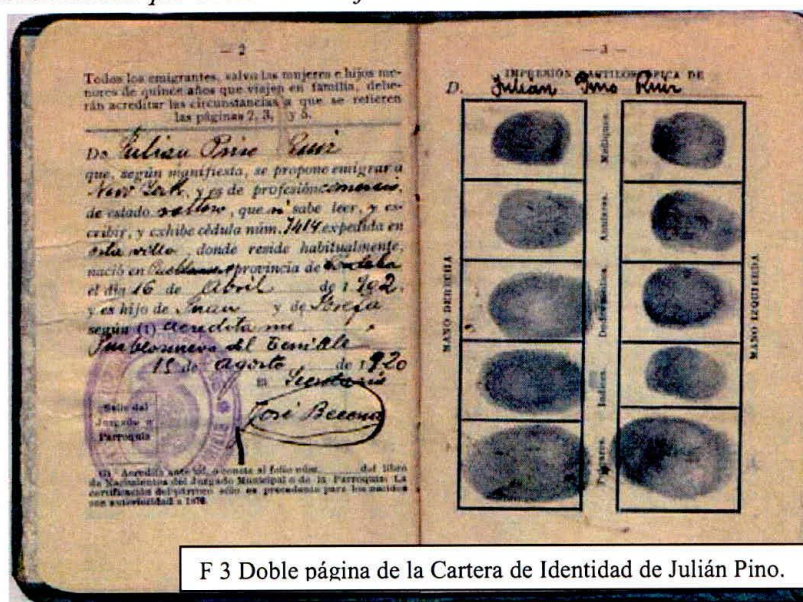 — 2 —
Todos los emigrantes, salvo las mujeres e hijos me-
nores de quince años que viajen en familia, debe-
rán acreditar las circunstancias a que se refieren
las páginas 2, 3, y 5.
Dn. Julian Pino Ruiz
que, según manifiesta, se propone emigrar a
New York, y es de profesión
de estado soltero, que si sabe leer, y es-
cribir, y exhibe cédula núm. 7414 expedida en
esta villa, donde reside habitualmente,
nació en provincia de Córdoba
el día 16 de Abril de 1.902.
y es hijo de Juan y de Josefa
según (1) acredita
Pueblonuevo del Terrible
15 de agosto de 1920
Secretario
José Becerra
Sello del
Juzgado o
Parroquia
(1) Acredita ante mí, o consta al folio núm. del libro
de Nacimientos del Juzgado Municipal o de la Parroquia: La
certificación del párroco sólo es procedente para los nacidos
con anterioridad a 1870.
— 3 —
IMPRESIÓN DACTILOSCÓPICA DE
D. Julián Pino Ruiz
MANO DERECHA
Medíques.
Anulares.
Índices.
Pulgares.
MANO IZQUIERDA
F 3 Doble página de la Cartera de Identidad de Julián Pino.